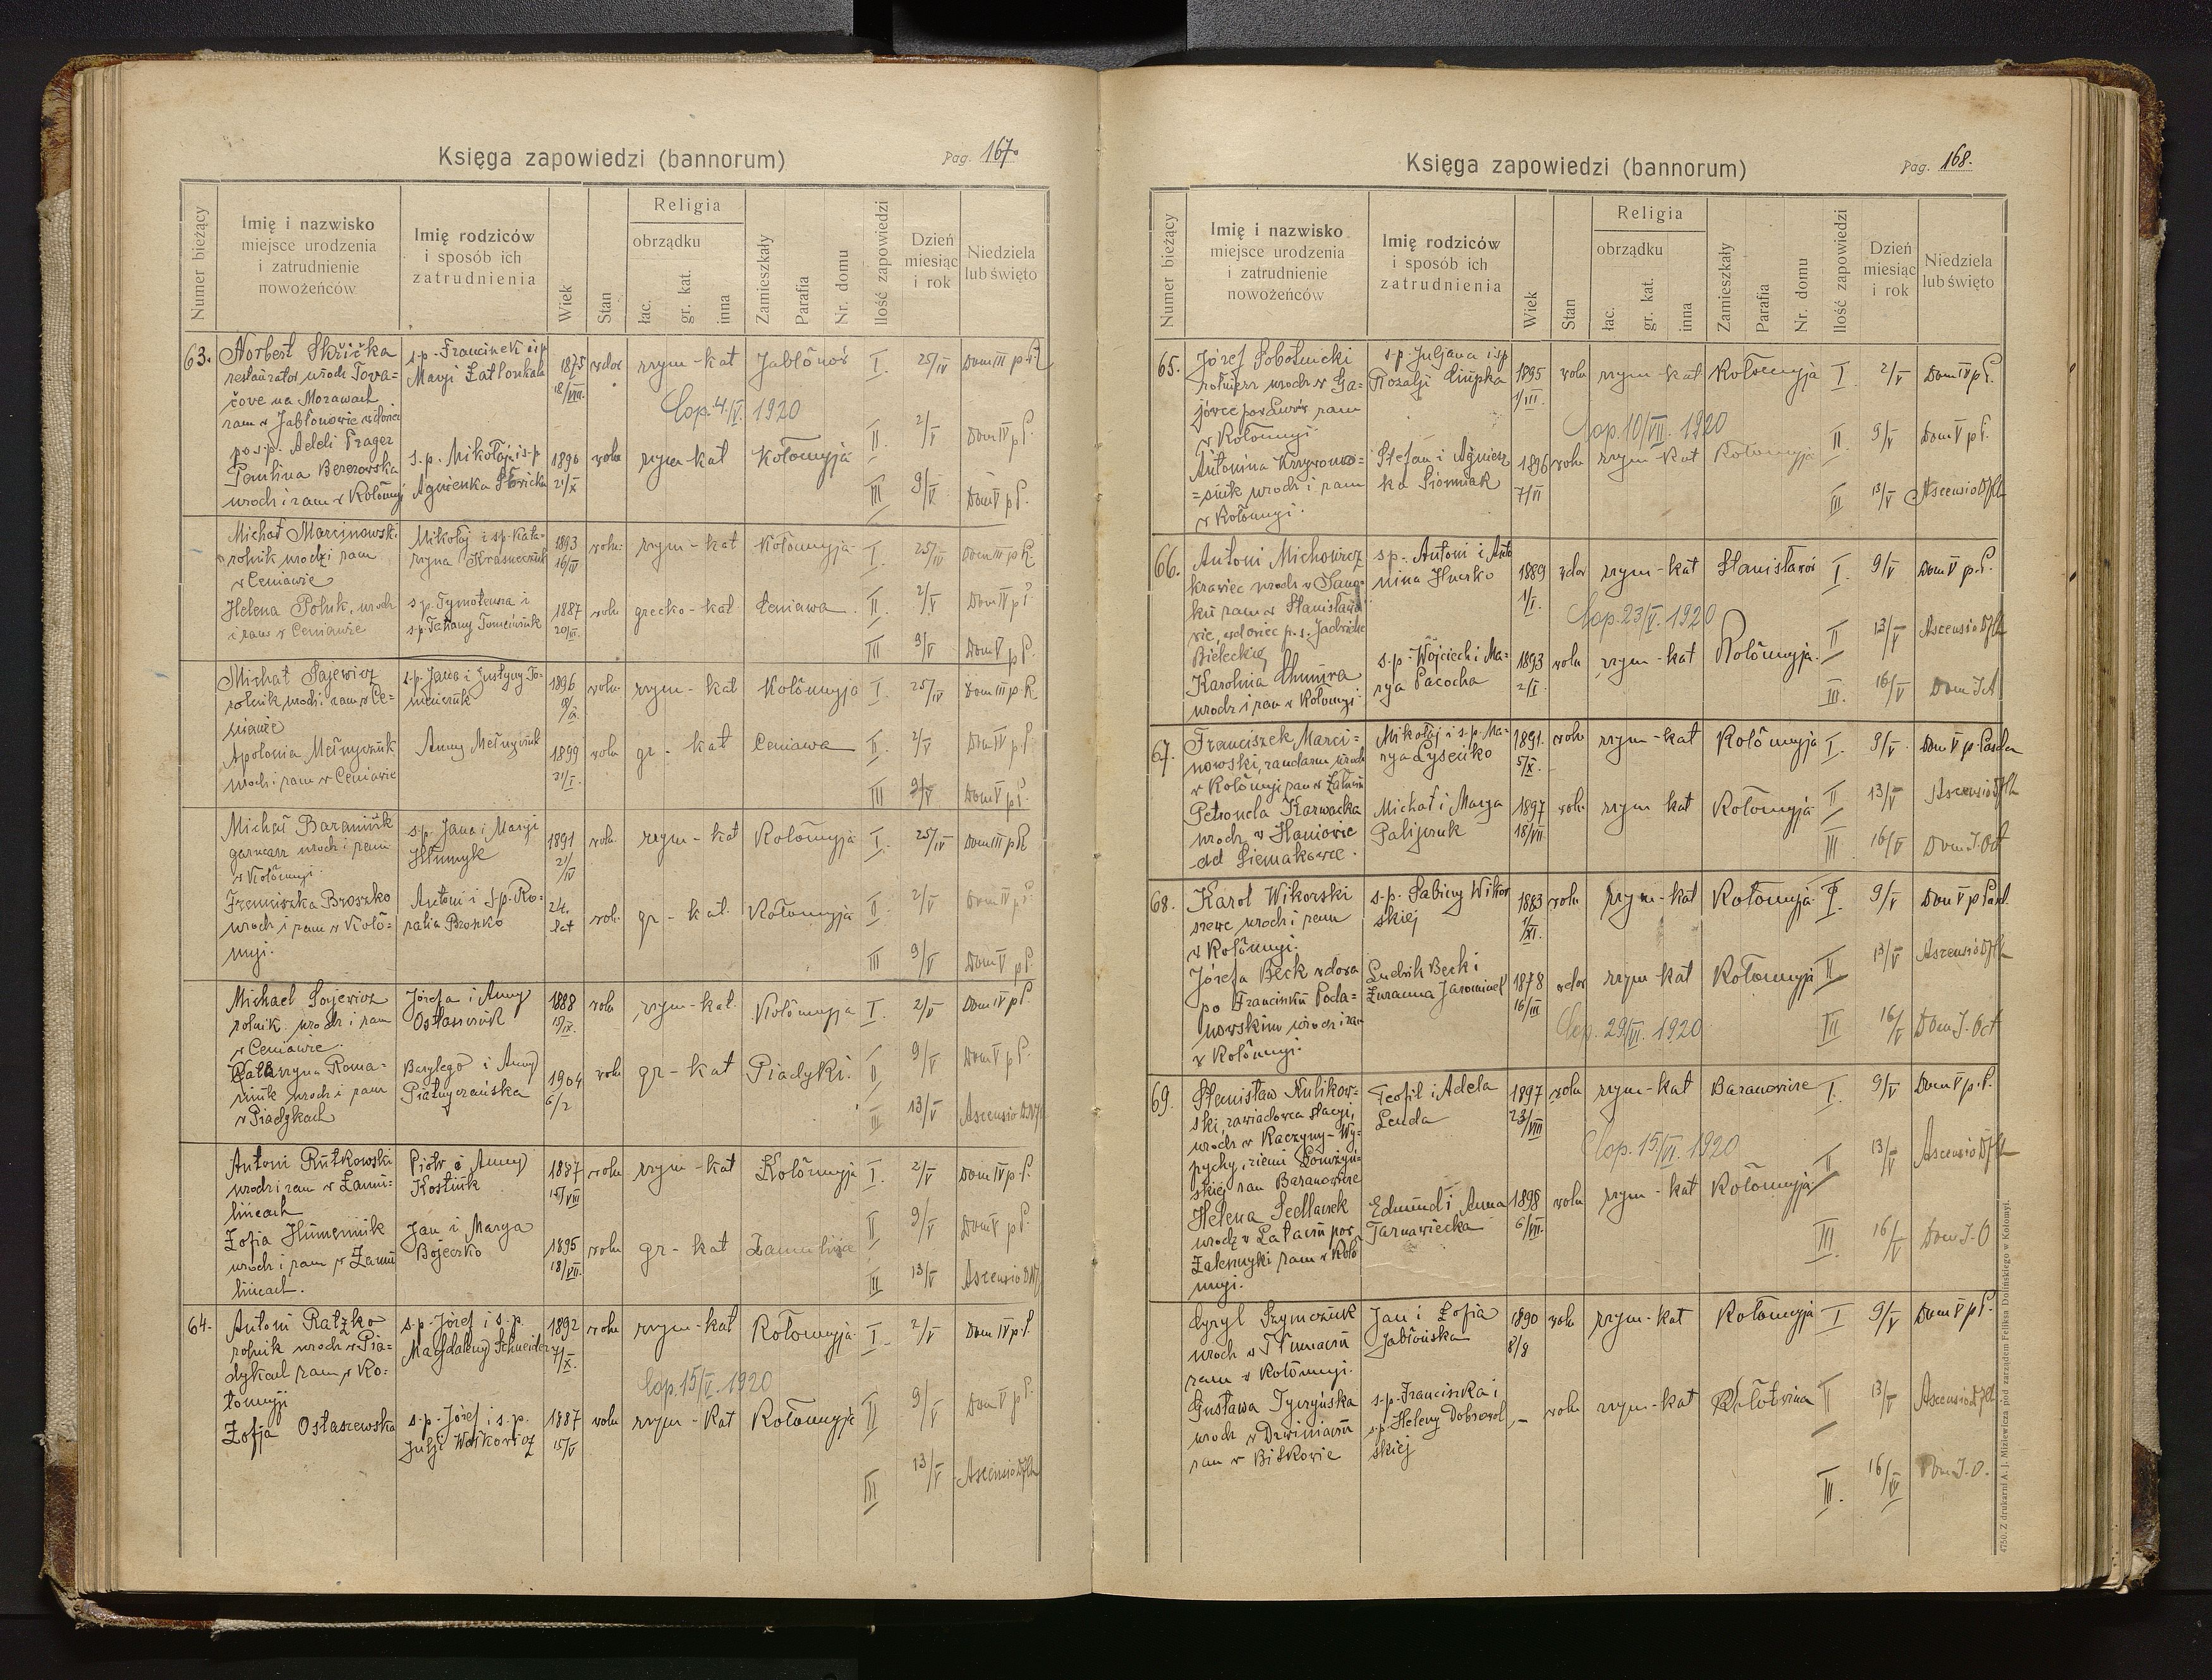 Księga zapowiedzi (bannorum)
Pag. 167.
Numer bieżący
Imię i nazwisko
miejsce urodzenia
i zatrudnienie
nowożeńców
Imię rodziców
i sposób ich
zatrudnienia
Wiek
Stan
Religia
obrządku
łac.
gr. kat.
inna
Zamieszkały
Parafia
Nr. domu
Ilość zapowiedzi
Dzień
miesiąc
i rok
Niedziela
lub święto
63. Norbert Skřička s.p. Francisek i sp 1875 wdow rzym-kat Jabłonów I. 25/IV Dom III p.
restaurator urodz Tova= Maryi Zatloukala 18/VIII.
čove na Morawach
zam w Jabłonowie wdowiec Cop. 4/V. 1920
po s.p. Adeli Prager II 2/V Dom IV p P.
Paulina Berezowska s.p. Mikołaj i s.p 1890 woln rzym-kat Kołomyja
urodz i zam w Kołomyj Agnieszka 21/X III 9/V Dom V p P.
Michał Marcinowski Mikołaj i s.p. Kata= 1893 woln. rzym-kat Kołomyja I. 25/IV Dom III p
rolnik urodz i zam rzyna 16/IV
w Ceniawie II. 2/V Dom IV p P.
Helena Polnik, urodz s.p. Tymoteusza i 1887 woln grecko-kat Ceniawa
i zam w Ceniawie s.p. Tatiany Tomeiniuk III 9/V Dom V p P.
Michał Sajewicz s.p. Jana i Justyny To= 1896 woln. rzym-kat Kołomyja I. 25/IV Dom III p
rolnik urodz. i zam w Ce=
niawie
Apolonia Melnyczuk Anny Melnyczuk 1899 woln gr-kat Ceniawa II. 2/V Dom IV p P.
urodz i zam w Ceniawie 21/I. III 9/V Dom V p P.
Michał Baraniuk s.p. Jana i Maryi 1891 woln. rzym-kat Kołomyja I. 25/IV Dom III p
garncarz urodz i zam 21/IV
w Kołomyi.
Franciszka Broszko Antoni i s.p. Ro= 24. woln. gr-kat. Kołomyja II. 2/V Dom IV p P.
urodz i zam w Koło= zalia Broszko lat
myi. III 9/V Dom V p P.
Michael Sajewicz Józefa i Anny 1888 woln rzym-kat. Kołomyja I. 2/V Dom IV p P.
rolnik urodz i zam Ostaszczuk
w Ceniawie.
Katarzyna Roma= Bazylego i Anny 1904 woln gr-kat Piadyki. II 9/V Dom V p P.
niuk urodz i zam Piatnyczańska 6/2
w Piadykach III 13/V Ascensio
Antoni Rutkowski Piotr i Anny 1887 woln rzym-kat Kołomyja I. 2/V Dom IV p P.
urodz i zam w Zamu= Kostiuk 15/VIII
lińcach II 9/V Dom V p P.
Zofia Humeniuk Jan i Marya 1895 woln gr-kat Zamulińce
urodz i zam w Zamu Bojeczko 18/VII.
lińcach. III 13/V Ascensio
64. Antoni Ratzko s.p. Józef i s.p. 1892 woln rzym-kat Kołomyja I. 2/V Dom IV p P.
rolnik urodz w Pia= Magdaleny Schneider 7/X.
dykach zam w Ko= Cop. 15/V. 1920
łomyji II 9/V Dom V p P
Zofja Ostaszewska s.p. Józef i s.p. 1887 woln rzym-Kat Kołomyja
Julji Wojkowicz 15/V
III 13/V Ascensio
Księga zapowiedzi (bannorum)
Pag. 168.
Numer bieżący
Imię i nazwisko
miejsce urodzenia
i zatrudnienie
nowożeńców
Imię rodziców
i sposób ich
zatrudnienia
Wiek
Stan
Religia
obrządku
łac.
gr. kat.
inna
Zamieszkały
Parafia
Nr. domu
Ilość zapowiedzi
Dzień
miesiąc
i rok
Niedziela
lub święto
65. Józef Sobotnicki s.p. Juljana i sp 1895 woln rzym-kat Kołomyja I 2/V Dom IV p P.
żołnierz urodz w Ga= Rozalji 1/III.
jówce pow Lwów zam
w Kołomyji. Cop. 10/VII. 1920 II 9/V Dom V p P.
Antonina Krzywono= Stefan i Agniesz 1896 woln rzym-kat Kołomyja
=siuk urodz i zam ka 7/VI III 13/V Ascensio
w Kołomyi.
66. Antoni Michowicz s.p. Antoni i Anto 1889 wdow rzym-kat Stanisławów I. 9/V Dom V p. P.
krawiec urodz w nina 1/I.
zam w Stanisławo Cop. 23/V. 1920
wie, wdowiec p. s. Jadwidze II 13/V Ascensio
Bieleckiej s.p. Wojciech i Ma= 1893 woln rzym-kat Kołomyja.
Karolina Chmura rya Pacocha 2/I.
urodz i zam w Kołomyji III. 16/V Dom
67. Franciszek Marci= Mikołaj i s.p. Ma= 1891. woln rzym-kat Kołomyja I. 9/V. Dom V p. Pascha
nowski, żandarm urodz rya Łysećko 5/X.
w Kołomyji zam w
Petronela Karwacka Michał i Marya 1897 woln rzym kat Kołomyja II 13/V Ascensio
urodz w Haniowie Palijczuk 18/VII
ad Siemakowce. III 16/V Dom I. Oct
68. Karol Wikorski s.p. Sabiny Wikor 1883 woln rzym-kat Kołomyja I. 9/V Dom V p Pasch.
szewc urodz i zam skiej 1/XI.
w Kołomyji. II 13/V Ascensio
Józefa Beck wdowa Ludwik Beck i 1878 wdow rzym-kat Kołomyja
po Franciszku Poda= Zuzanna 16/III
nowskim urodz i zam Cop. 29/VI. 1920 III 16/V Dom I. Oct
w Kołomyji.
69. Stanisław Kulikow= Teofil i Adela 1897 woln rzym-kat Baranowice I. 9/V Dom V p. P.
ski, zawiadowca stacyi, Lenda 23/VIII
urodz w Kaczyny-Wy=
pychy, ziemi Łomżyń= Cop. 15/VI. 1920 II 13/V Ascensio
skiej zam Baranowice
Helena Sedlaczek Edmund i Anna 1898 woln rzym-kat Kołomyja
urodz w pow Tarnawiecka 6/VII.
Zaleszczyki zam w Koło III. 16/V Dom I. O
myi.
Cyryl Szymczuk Jan i Zofia 1890 woln rzym-kat Kołomyja I 9/V Dom V p P.
urodz w Tłumaczu Jabłońska 8/8
zam w Kołomyji.
Gustawa Tyczyńska s.p. Franciszka i - woln rzym-kat II 13/V Ascensio
urodz w Dźwiniaczu s.p. Heleny Dobrowol
zam w Bitkowie skiej
III. 16/V Dom I. O.
4750. Z drukarni A. J. Miziewicza pod zarządem Feliksa Dolińskiego w Kołomyi.